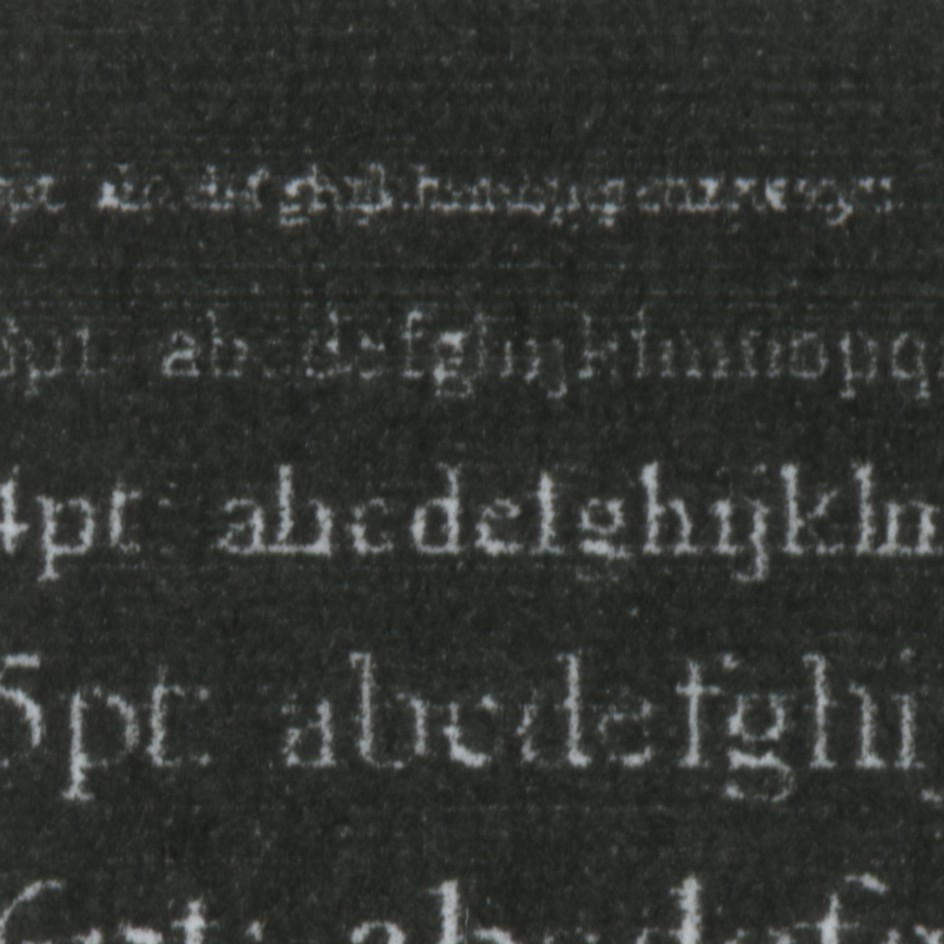 pt abcdefghijklmnopqrstuvwxyz
3pt abcdefghijklmnopq
4pt abcdefghijklm
5pt: abcdefghij
6pt: abcdef